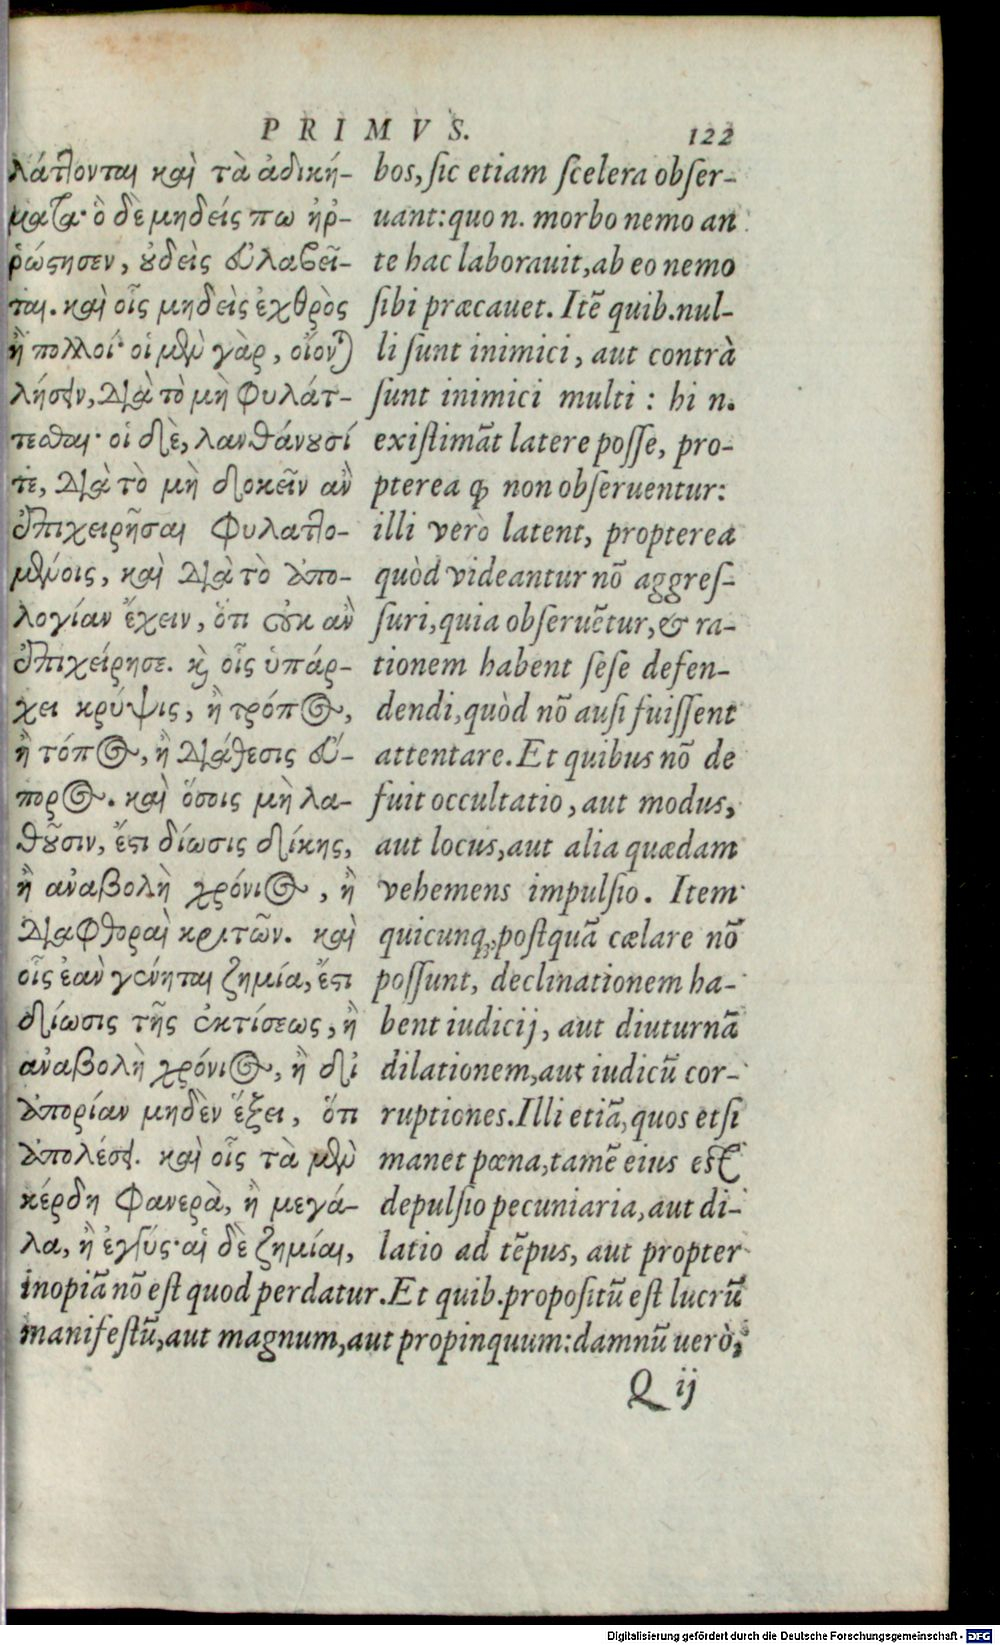 PRIMVS. 122
λάττονται καὶ τὰ ἀδική-
ματα· ὃ δὲ μηδείς πω ἠῤ-
ῥώςησεν, οὐδεὶς εὐλαβεῖ-
ται. καὶ οἷς μηδεὶς ἐχθρὸς
ἢ πολλοί· οἱ μὲν γὰρ, οἴονται
λήσειν, διὰ τὸ μὴ φυλάτ-
τεσθαι· οἱ δὲ, λανθάνουσί
τε, διὰ τὸ μὴ δοκεῖν ἂν
ἐπιχειρῆσαι φυλαττο-
μένοις, καὶ διὰ τὸ ἀπο-
λογίαν ἔχειν, ὅτι οὐκ ἂν
ἐπιχείρησε. καὶ οἷς ὑπάρ-
χει κρύψις, ἢ τρόπος,
ἢ τόπος, ἢ διάθεσις εὔ-
πορος. καὶ ὅσοις μὴ λα-
θοῦσιν, ἔςι δίωσις δίκης,
ἢ ἀναβολὴ χρόνιος, ἢ
διαφθοραὶ κριτῶν. καὶ
οἷς ἐὰν γένηται ζημία, ἔςι
δίωσις τῆς ἐκτίσεως, ἢ
ἀναβολὴ χρόνιος, ἢ δι
ἀπορίαν μηδὲν ἕξει, ὅτι
ἀπολέσει. καὶ οἷς τὰ μὲν
κέρδη φανερὰ, ἢ μεγά-
λα, ἢ ἐγγύς· αἱ δὲ ζημίαι,
bos, sic etiam scelera obser-
uant: quo n. morbo nemo an
te hac laborauit, ab eo nemo
sibi præcauet. Itẽ quib. nul-
li sunt inimici, aut contrà
sunt inimici multi : hi n.
existimãt latere posse, pro-
pterea ꝙ non obseruentur:
illi verò latent, propterea
quòd videantur nõ aggres-
suri, quia obseruẽtur, & ra-
tionem habent sese defen-
dendi, quòd nõ ausi fuissent
attentare. Et quibus nõ de
fuit occultatio, aut modus,
aut locus, aut alia quædam
vehemens impulsio. Item
quicunq; postquã cælare nõ
possunt, declinationem ha-
bent iudicij, aut diuturnã
dilationem, aut iudicũ cor-
ruptiones. Illi etiã, quos etsi
manet pœna, tamẽ eius est
depulsio pecuniaria, aut di-
latio ad tẽpus, aut propter
inopiã nõ est quod perdatur. Et quib. propositũ est lucrũ
manifestũ, aut magnum, aut propinquum: damnũ uerò,
Q ij
Digitalisierung gefördert durch die Deutsche Forschungsgemeinschaft - DFG